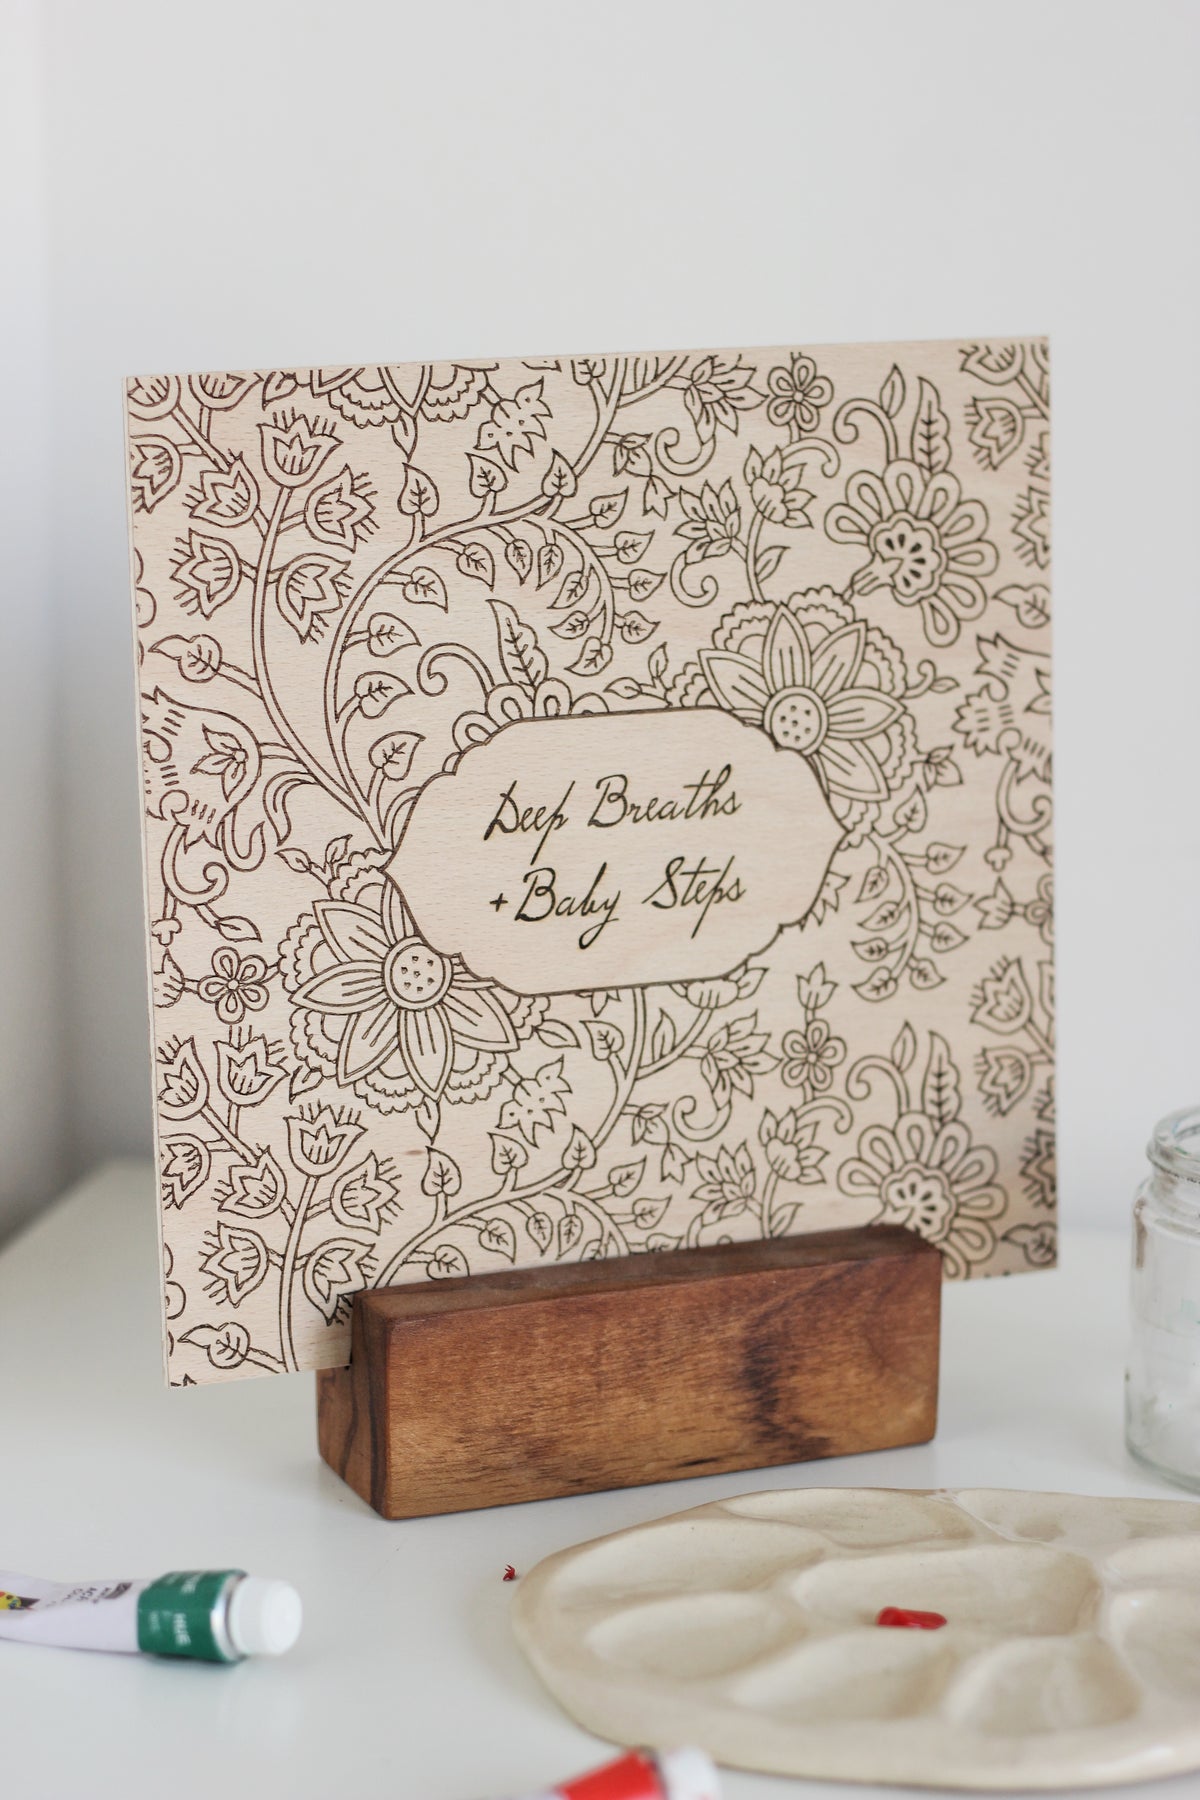 Deep Breaths
+ Baby Steps
HUE